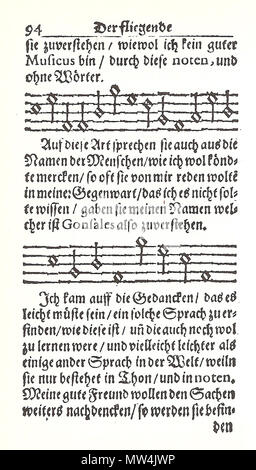 94 Der fliegende
sie zuverstehen / wiewol ich kein guter
Musicus bin / durch diese noten, und
ohne Wörter.
Auf diese Art sprechen sie auch aus die
Namen der Menschen / wie ich wol könd-
te mercken / so oft sie von mir reden wolte
in meine: Gegenwart / das ich es nicht sol-
te wissen / gaben sie meinen Namen wel-
cher ist Gonsales also zuverstehen.
Ich kam auff die Gedancken / das es
leicht müste sein / ein solche Sprach zu er-
finden / wie diese ist / uñ die auch noch wol
zu lernen were / und vielleicht leichter als
einige ander Sprach in der Welt / weiln
sie nur bestehet in Thon / und in noten.
Meine gute Freund wollen den Sachen
weiters nachdencken / so werden sie befin-
den
alamy
Image ID: MW4JWP
www.alamy.com